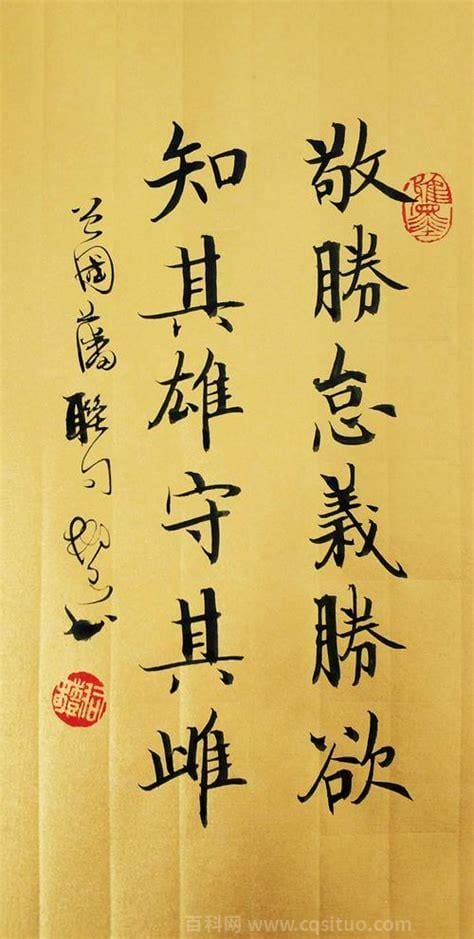 敬勝怠義勝欲
知其雄守其雌
曾國藩聯句
百科网 www.cqsituo.com